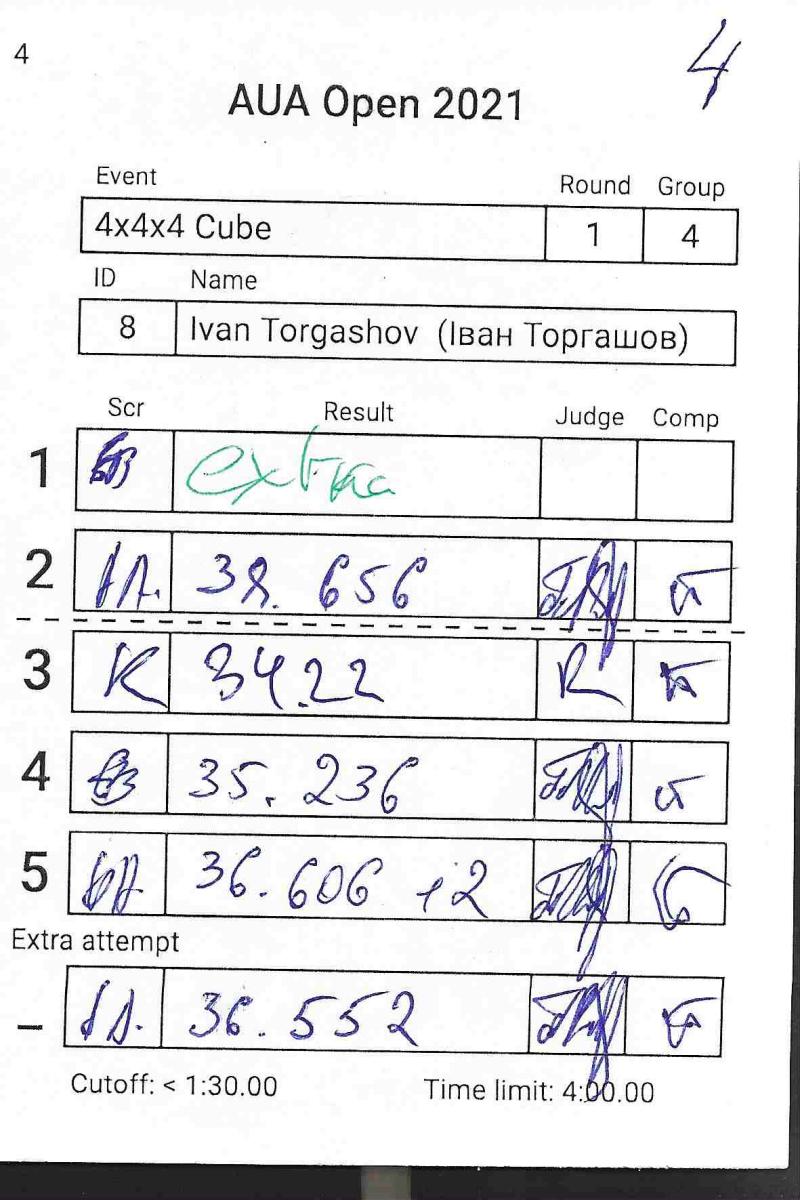 4
4
AUA Open 2021
Event Round Group
4x4x4 Cube 1 4
ID Name
8 Ivan Torgashov (Іван Торгашов)
Scr Result Judge Comp
1 extra
2 38.656
3 K 34.22
4 35.236
5 36.606 +2
Extra attempt
– 36.552
Cutoff: < 1:30.00 Time limit: 4:00.00